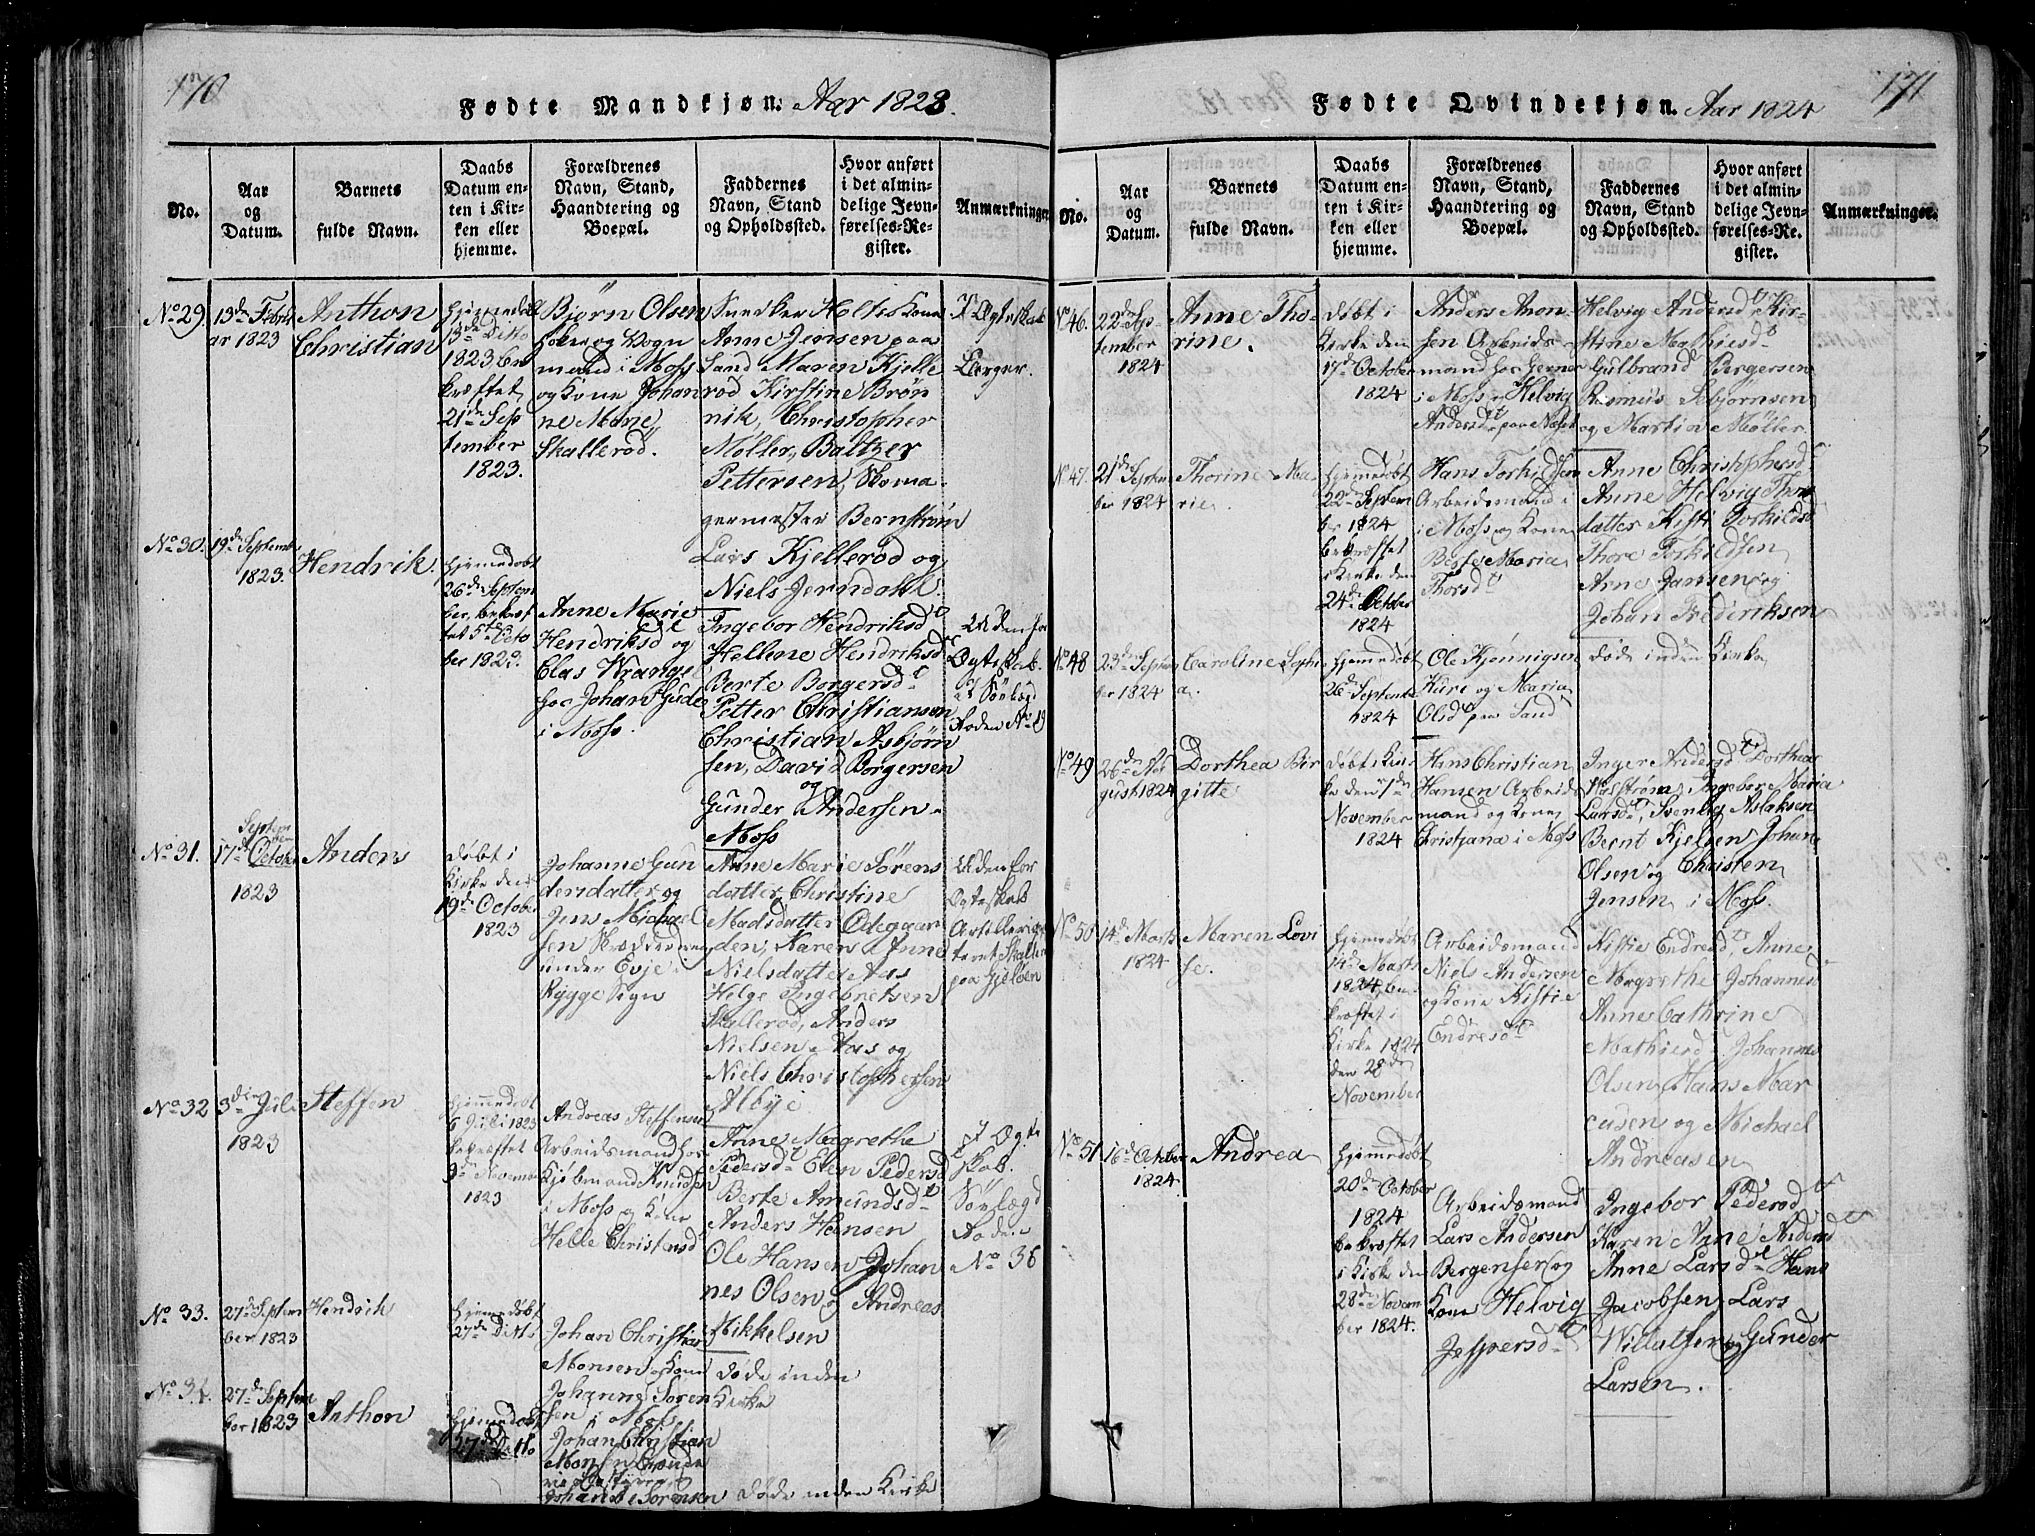 170
Fødte Mandkjøn. Aar 1823.
No.
Aar
og
Datum.
Barnets
fulde Navn.
Daabs
Datum en-
ten i Kir-
ken eller
hjemme.
Forældrenes
Navn, Stand,
Haandtering og
Boepæl.
Faddernes
Navn, Stand
og Opholdssted.
Hvor anført
i det almin-
delige Jevn-
førelses-Re-
gister.
Anmærkninger
No 29.
13de Febru
ar 1823
Anthon
Christian
Hjemmedøbt
13de Ditto
1823 be
kræftet
21de Sep
tember
1823.
Bjørn Olsen
og Vogn
mand i Moss
og Kone Johan
ne Marie
Skallerød.
Snedker Holts Kone
Anne Jensen paa
Sand Maren Kjelle
rød Kirstine Brøn
nik, Christopher
Møller, Baltzer
Pettersen, Skoma-
germester Bernstrøm
Lars Kjellerød og
Niels Jerndahl.
I Ægteskab
Borger.
No 30.
19de Septemb.
1823.
Hendrik.
Hjemmedøbt
26de Septem
ber, bekræf
tet 5te Octo
ber 1823.
Anne Marie
Hendriksd og
Clas Wrangel
hos Johan Gude
i Moss.
Ingebor Hendriksd
Hellene Hendriksd
Berte Borgersd
Petter Christiansen
Christian Asbjørn
sen, David Borgersen
og
Gunder Andersen
Moss
Uden for
Ægteskab.
Søelægd
Roden No 19
No 31.
Septem
ber
17de Octobr
1823
Anders
døbt i
Kirke den
19de October
1823
Johanne Gun
dersdatter og
Jens Michael
sen
under Evje i
Rygge Sogn
Anne Marie Sørens
datter, Christine
Madsdatter Ødegaar
den, Karen Anne
Nielsdatter Aas
Helge Ingebretsen
Skallerød, Anders
Nielsen Aas og
Niels Christophersen
Albye
Uden for
Ægteskab
Artelleri
paa Gjeløen
No 32
3die Juli
1823
Steffen
Hjemmedøbt
6 Juli 1823
bekræftet
9de November
1823
Andreas Steffensen
Arbeidsmand hos
Kjøbmand Knudsen
i Moss og Kone
Helle Christensd
Anne Magrethe
Pedersd Elen Pedersd
Berte Amundsd
Anders Hansen
Ole Hansen Johan
nes Olsen og Andreas
Mikkelsen
I Ægte
skab.
Søelægd
Rode
No 36
No 33.
27de Septem
ber 1823
Hendrik
Hjemmedøbt
27de Ditto
Johan Christian
Monsen og Kone
Johanne Søren
sen i Moss
døde inden
Kirke
No 34.
27de Septem
ber 1823
Anthon
Hjemmedøbt
27de Ditto
Johan Christian
Monsen
Johanne Sørensen
døde inden Kirke
171
Fødte Qvindekjøn. Aar 1824
No.
Aar
og
Datum.
Barnets
fulde Navn.
Daabs
Datum en-
ten i Kir-
ken eller
hjemme.
Forældrenes
Navn, Stand,
Haandtering og
Boepæl.
Faddernes
Navn, Stand
og Opholdssted.
Hvor anført
i det almin-
delige Jevn-
førelses-Re-
gister.
Anmærkninger.
No 46.
22de Sep
tember
1824
Anne Tho-
rine.
døbt i
Kirke den
17de October
1824
Anders Anon
sen Arbeids-
mand hos Gerner
i Moss og Helvig
Andersd paa Næset
Helvig Andersd Kir-
stine Mathiesd
Gulbrand Bergersen
Rasmus Esbjørnsen
og Martin Møller.
No 47.
21de Septem
ber 1824
Thorine Ma-
rie.
Hjemmedøbt
22de Septem
ber 1824
bekræftet
i Kirke den
24de October
1824
Hans Torkildsen
Arbeidsmand i
i Moss og Kone
Berte Maria
Thorsd
Anne Christophersd
Anne Helvig Thors
datter Kisti Torkildsd
Thore Torkildsen
Arne Jansen og
Johan Frederiksen
No 48
23de Septem
ber 1824
Caroline Sophi
a.
Hjemmedøbt
26de Septemb
1824
Ole Kjønnigsen
Kure og Maria
Olsd paa Sand
døde inden Kirke
No 49
26de Au
gust 1824
Dorthea Bir
gitte
døbt i Kir
ke den 7de
November
1824
Hans Christian
Hansen Arbeids
mand og Kone
Christiana i Moss
Inger Andersd Dorthea
Ingebor Maria
Larsd, Svenlig Aslaksen
Bernt Kjelsen Johan
Olsen og Christen
Jensen i Moss.
No 50
14de Marts
1824
Maren Lovi
se.
Hjemmedøbt
14de Marts
1824, be
kræftet i
Kirke 1824
den 28de
November
Arbeidsmand
Niels Andersen
og Kone Kistie
Endresd
Kistie Endresd, Anne
Magrethe Johannesd
Anne Cathrine
Mathiesd Johannes
Olsen, Hans Mar
cusen og Michael
Andreasen
No 51
16de October
1824
Andrea
Hjemmedøbt
20de October
1824
bekræftet
i Kirke den
28de Novem
ber 1824.
Arbeidsmand
Lars Andersen
Bergensen og
Kone Helvig
Jespersd
Ingebor Pedersd
Karen Anne Andersd
Anne Larsd Hans
Jacobsen, Lars
Willatsen og Gunder
Larsen.